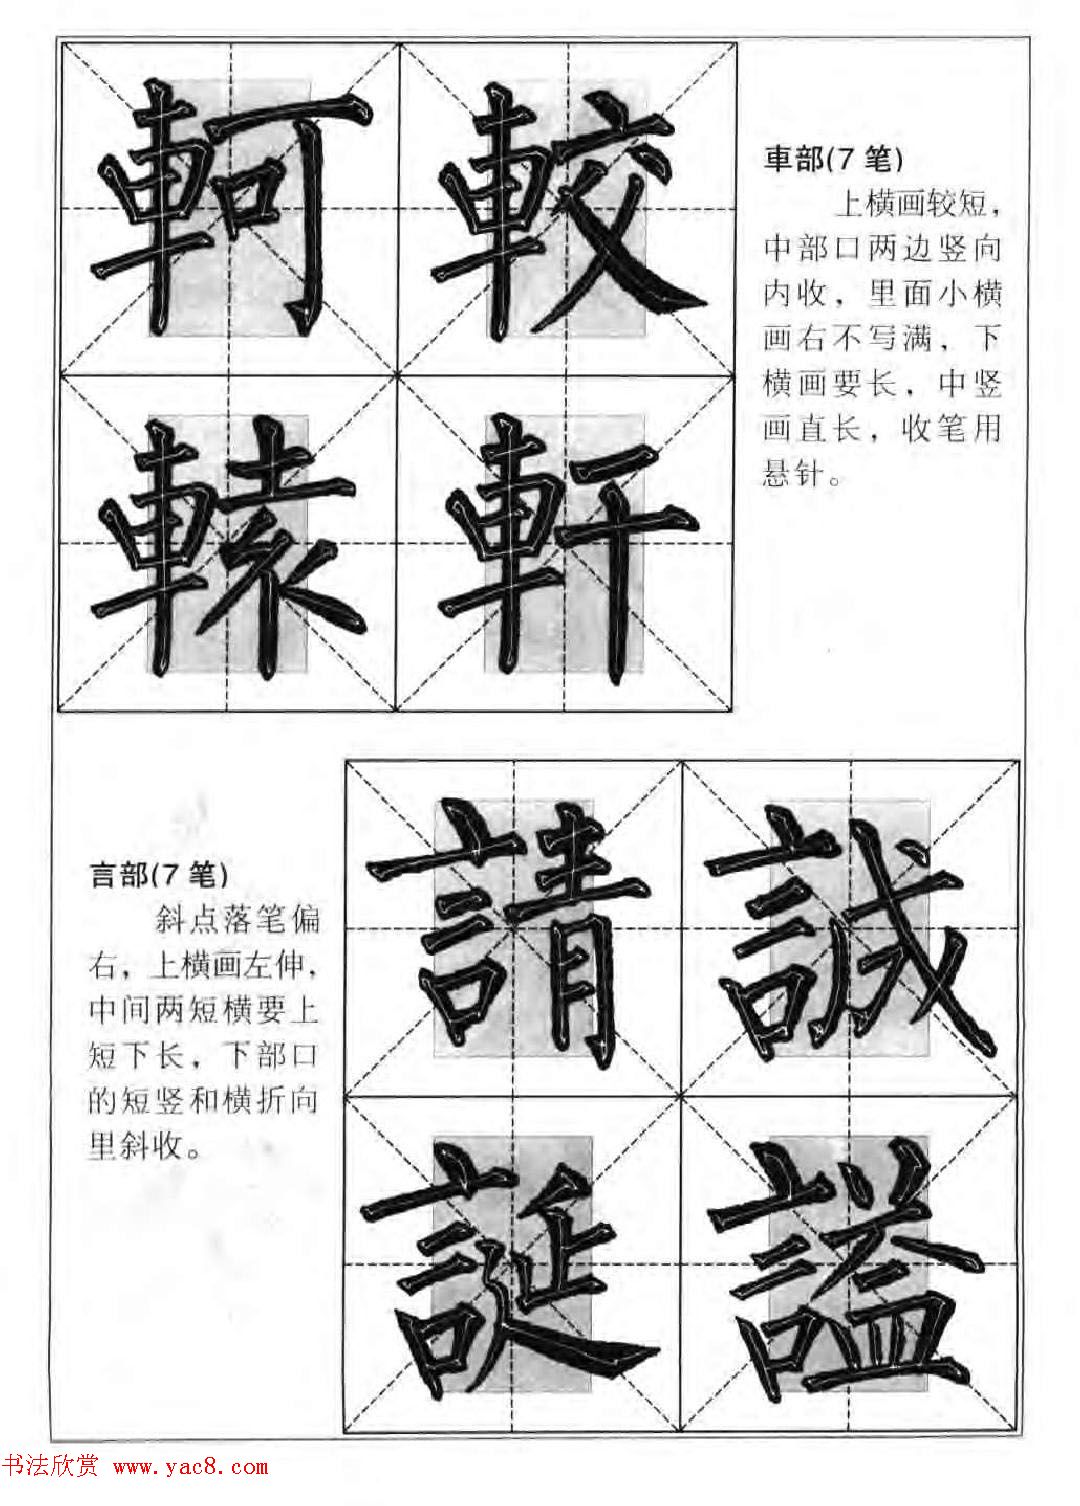 軻較
車部(7 笔)
上横画较短，
中部口两边竖向
内收，里面小横
画右不写满，下
横画要长，中竖
画直长，收笔用
悬针。
轅軒
請誠
言部(7 笔)
斜点落笔偏
右，上横画左伸，
中间两短横要上
短下长，下部口
的短竖和横折向
里斜收。
誕謚
书法欣赏 www.yac8.com